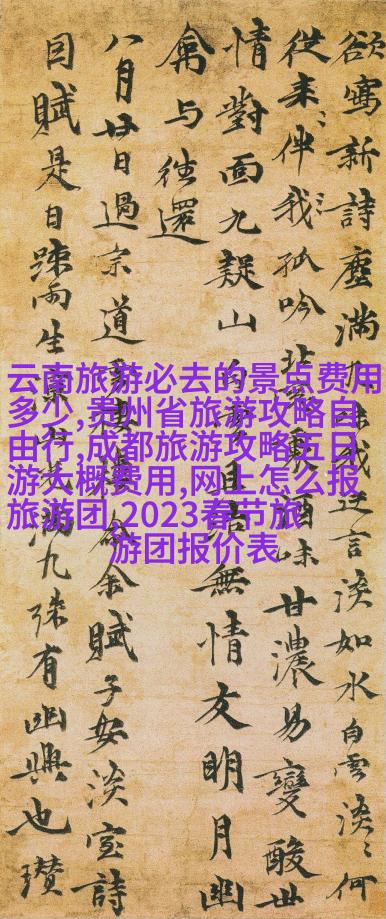 欲寫新詩塵满言淡如水白雲淡〻何
従来〻伴我〻孤吟酒味甘濃易變酸世
情對面九疑山且結無情友明月幽
禽与徃還
八月廿日過宗道余賦子安淡室詩
目賦是日踈雨生满九殊有幽興也瓚
云南旅游必去的景点费用
多少,贵州省旅游攻略自
由行,成都旅游攻略五日
游大概费用,网上怎么报
旅游团,2023春节旅
游团报价表